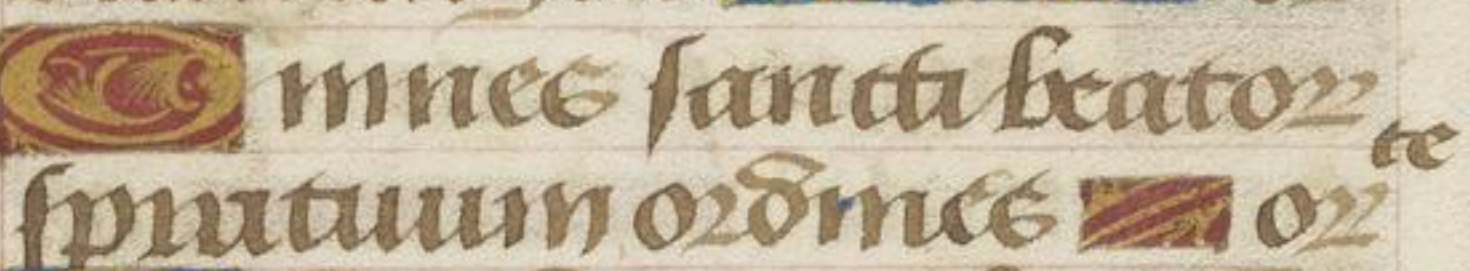 Omnes sancti beator
te
spirituum ordines or